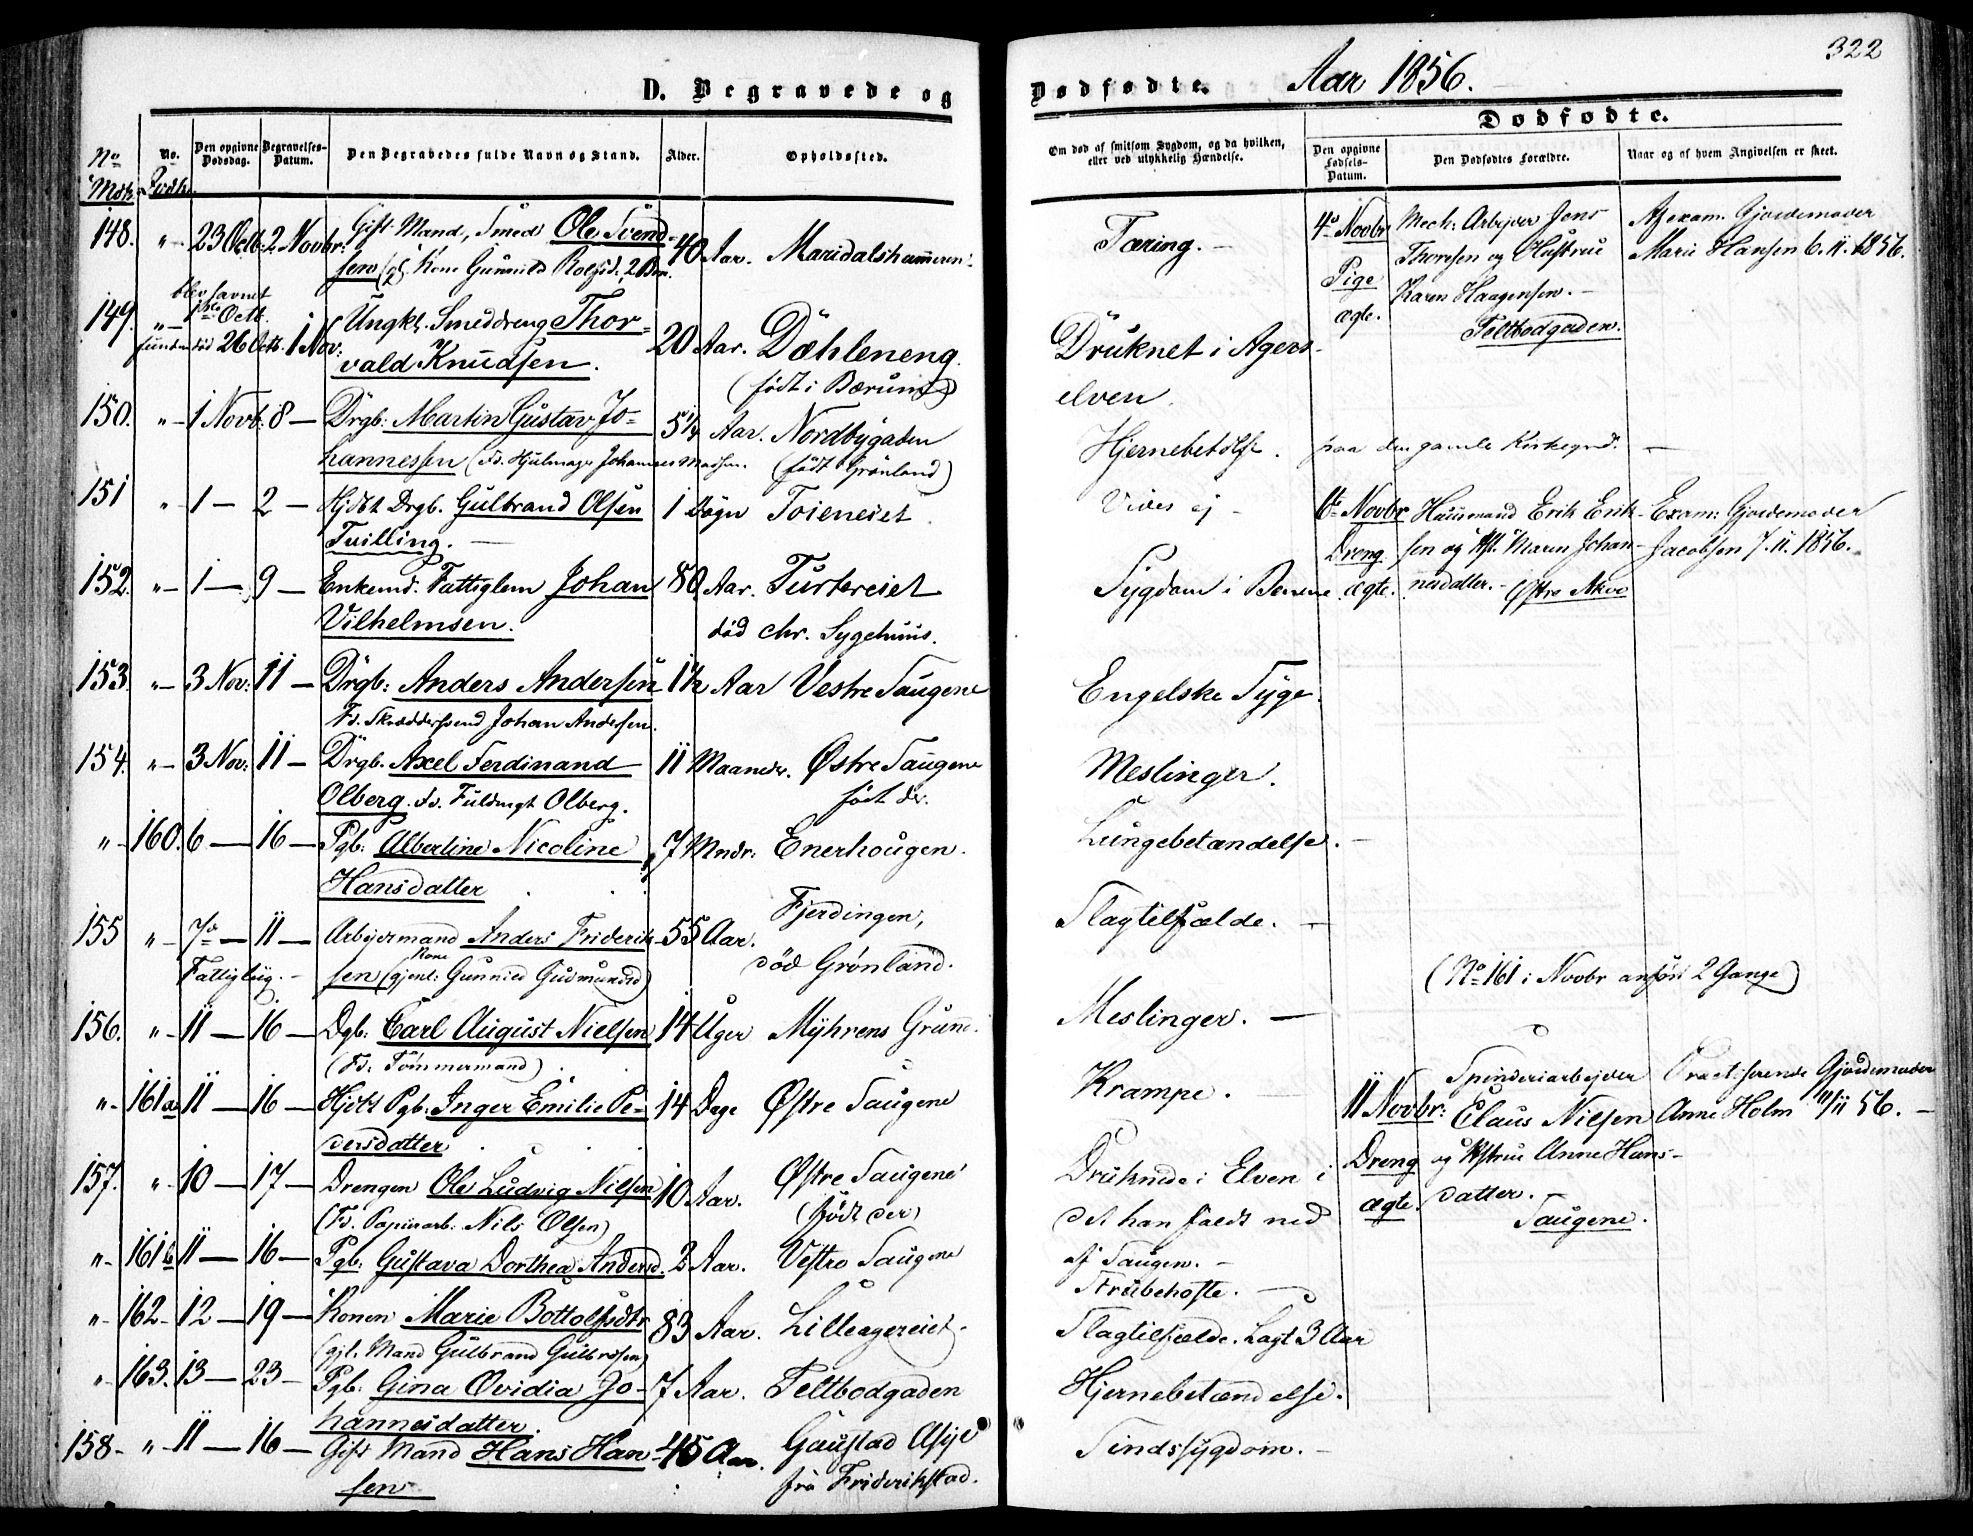 322
D. Begravede og Dødfødte. Aar 1856.
Dødfødte.
No Mdk.
No. Qvdk.
Den opgivne Dødsdag.
Begravelses-Datum.
Den Begravedes fulde Navn og Stand.
Alder.
Opholdssted.
Om død af smitsom Sygdom, og da hvilken,
eller ved ulykkelig Hændelse.
Den opgivne Fødsels-Datum.
Den Dødfødtes Forældre.
Naar og af hvem Angivelsen er skeet.
148. " 23 Octb. 2 Novbr. Gift Mand, Smed Ole Svend- 40 Aar. Maridalshammeren. Tæring. –
sen (gl. Kone Gunnild Rolfsd. 2 Brn.
blev savnet
149. " 1ste Octb.
funden død 26 Octb. 1 Nov. Ungkl. Smeddreng Thor- 20 Aar. Dæhleneng. Druknet i Agers-
vald Knudsen. (født i Bærum) elven.
150. " 1 Novb. 8 – Drgb: Martin Gustav Jo- 5 1/4 Aar. Nordbygaden Hjernebetdlse. paa den gamle Kirkegrd. –
hannessen (Fd. Hjulmagr Johannes Madsen. (født Grønland)
151 " 1 – 2 – Hjdbt Drgb. Gulbrand Olsen 1 Døgn Toieneiet. Vides ej –
Tvilling. –
152. " 1 – 9 – Enkemd. Fattiglem Johan 80 Aar. Turtereiet Sygdom i Benene
Vilhelmsen. død chr. Sygehuus.
153. " 3 Nov: 11 – Drgb: Anders Andersen 1 1/2 Aar Vestre Saugene Engelske Syge.
Fd. Skræddersvend Johan Andersen.
154. " 3 Nov: 11 – Drgb. Axel Ferdinand 11 Maaneder. Østre Saugene Meslinger.
Olberg. Fd. Fuldmgt Olberg. født der.
" 160. 6 – 16 – Pgb: Albertine Nicoline 7 Mndr: Enerhougen. Lungebetændelse. –
Hansdatter
155 " 7de – 11 – Arbejdermand Anders Friderik- 55 Aar. Fjerdingen, Slagtilfælde. –
Fattiglig. – sen (gjenl: Kone Gunnild Gudmundsd) død Grønland.
156. " 11 – 16 – Dgb: Carl August Nielsen 14 Uger Myhrens Grund. Meslinger. –
(Fd: Tømmermand)
" 161a 11 – 16 – Hjdbt Pgb: Inger Emilie Pe- 14 Dage Østre Saugene Krampe.
dersdatter
157. " 10 – 17 – Drengen Ole Ludvig Nilsen 10 Aar. Østre Saugene Druknede i Elven i
(Fd. Papirarb: Nils Olsen) (født der) det han faldt ned
af Saugen. –
" 161b 11 – 16 – Pgb: Gustava Dorthea Andersd. 3 Aar. Vestre Saugene Strubehoste. –
" 162 12 – 19 – Konen Marie Bottolfsdtr 83 Aar. Lilleagereiet. Slagtilfælde. Lagt 3 Aar
(gjl. Mand Gulbrand Gulbrdsen)
" 163. 13 – 23 – Pgb: Gina Ovidia Jo- 7 Aar. Teltbodgaden Hjernebetændelse.
hannesdatter.
158 " 11 – 16 – Gift Mand Hans Han- 45 Aar. Gaustad Asyl Sindssygdom. –
sen fra Friderikstad.
4de Novbr Mech: Arbejder Jens Af exam. Gjordemoder
Pige Thoresen og Hustrue Marie Hansen 6. 11. 1856.
ægte. Karen Haagensen. –
Teltbodgaden.
6te Novbr Huusmand Erik Erik- Exam: Gjordemoder
Dreng sen og Hst. Maren Johan- Jacobsen 7. 11. 1856.
ægte. nesdatter. – Østre Akve
(No 161 i Novbr anført 2 Gange)
11 Novbr: Spinderiarbejder Practiserende Gjordemoder
Claus Nilsen Anne Holm 11/11 56. –
Dreng og Hstrue Anne Hans-
ægte. datter.
Saugene.